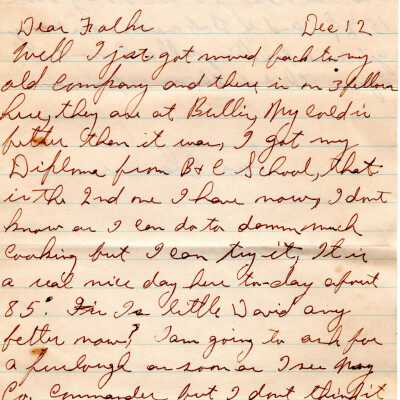 Dear Folks Dec 12
Well I just got moved back to my
old Company and there is on 3 fellows
here, they are at Bullis, My cold is
better then it was, I got my
Diploma from B & C School, that
is the 2nd one I have now, I dont
know as I can do to damn much
cooking but I can try it, It is
a real nice day here to-day about
85° Is little David any
better now? I am going to ask for
a furlough as soon as I see my
Co. Commander but I dont think it